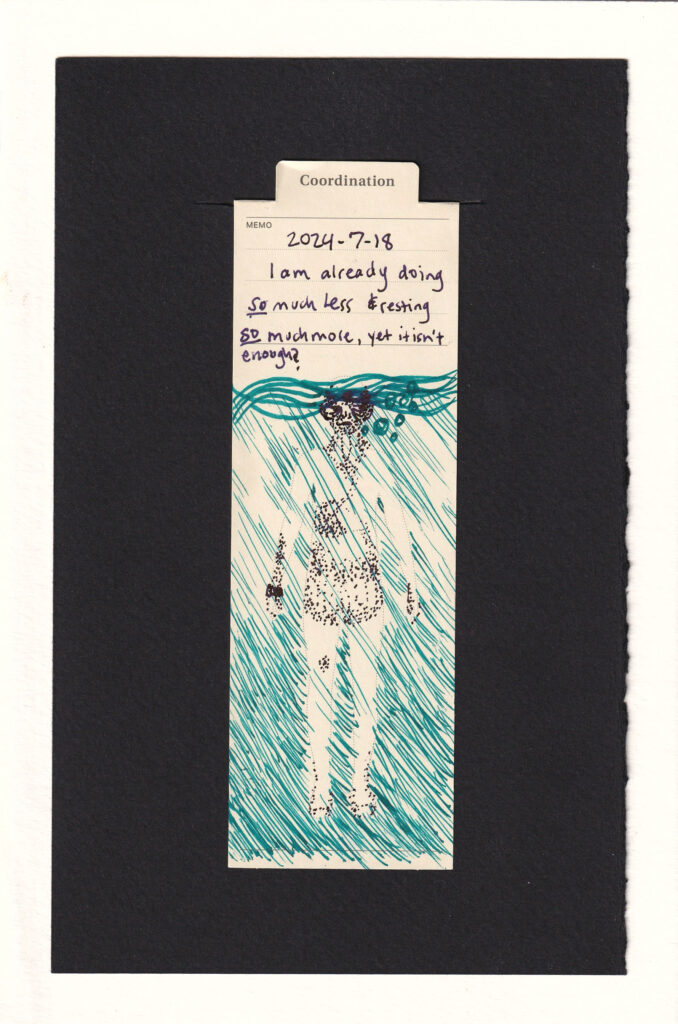 Coordination
MEMO
2024-7-18
I am already doing
so much less & resting
so much more, yet it isn't
enough?